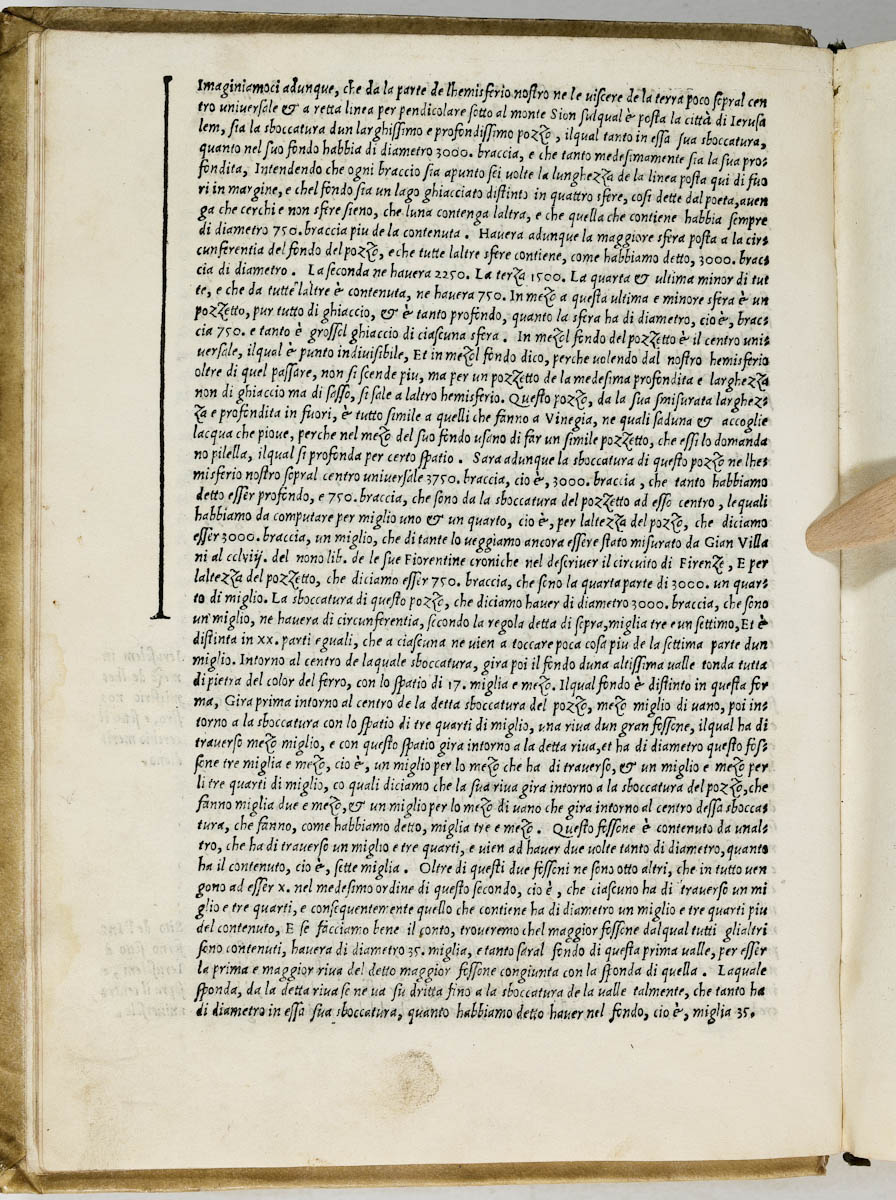 Imaginiamoci adunque, che da la parte de lhemisferio nostro ne le viscere de la terra poco sopral cen
tro universale & a retta linea per pendicolare sotto al monte Sion sulqual è posta la città di Ierusa
lem, sia la sboccatura dun larghissimo e profondissimo pozzo, ilqual tanto in essa sua sboccatura,
quanto nel suo fondo habbia di diametro 3000. braccia, e che tanto medesimamente sia la sua pro=
fondita, Intendendo che ogni braccio sia apunto sei volte la lunghezza de la linea posta qui di fuo
ri in margine, e chel fondo sia un lago ghiacciato distinto in quattro sfere, cosi dette dal poeta, aven
ga che cerchi e non sfere sieno, che luna contenga laltra, e che quella che contiene habbia sempre
di diametro 750. braccia piu de la contenuta. Havera adunque la maggiore sfera posta a la cir=
cunferentia del fondo del pozzo, e che tutte laltre sfere contiene, come habbiamo detto, 3000. brac=
cia di diametro. La seconda ne havera 2250. La terza 1500. La quarta & ultima minor di tut
te, e che da tutte laltre è contenuta, ne havera 750. In mezo a questa ultima e minore sfera è un
pozzetto, pur tutto di ghiaccio, & è tanto profondo, quanto la sfera ha di diametro, cio è, brac=
cia 750. e tanto è grossol ghiaccio di ciascuna sfera. In mezol fondo del pozzetto è il centro uni=
versale, ilqual è punto indivisibile, Et in mezol fondo dico, perche volendo dal nostro hemisferio
oltre di quel passare, non si scende piu, ma per un pozzetto de la medesima profondita e larghezza
non di ghiaccio ma di sasso, si sale a laltro hemisferio. Questo pozzo, da la sua smisurata larghez=
za e profondita in fuori, è tutto simile a quelli che fanno a Vinegia, ne quali saduna & accoglie
lacqua che piove, perche nel mezo del suo fondo usano di far un simile pozzetto, che essi lo domanda
no pilella, ilqual si profonda per certo spatio. Sara adunque la sboccatura di questo pozzo ne lhe=
misferio nostro sopral centro universale 3750. braccia, cio è, 3000. braccia, che tanto habbiamo
detto esser profondo, e 750. braccia, che sono da la sboccatura del pozzetto ad esso centro, lequali
habbiamo da computare per miglio uno & un quarto, cio è, per laltezza del pozzo, che diciamo
esser 3000. braccia, un miglio, che di tante lo veggiamo ancora essere stato misurato da Gian Villa
ni al cclviij. del nono lib. de le sue Fiorentine croniche nel descriver il circuito di Firenze, E per
laltezza del pozzetto, che diciamo esser 750. braccia, che sono la quarta parte di 3000. un quar=
to di miglio. La sboccatura di questo pozzo, che diciamo haver di diametro 3000. braccia, che sono
un miglio, ne havera di circunferentia, secondo la regola detta di sopra, miglia tre e un settimo, Et è
distinta in XX. parti eguali, che a ciascuna ne vien a toccare poca cosa piu de la settima parte dun
miglio. Intorno al centro de laquale sboccatura, gira poi il fondo duna altissima valle tonda tutta
di pietra del color del ferro, con lo spatio di 17. miglia e mezo. Ilqual fondo è distinto in questa for
ma, Gira prima intorno al centro de la detta sboccatura del pozzo, mezo miglio di vano, poi in=
torno a la sboccatura con lo spatio di tre quarti di miglio, una riva dun gran fossone, ilqual ha di
traverso mezo miglio, e con questo spatio gira intorno a la detta riva, et ha di diametro questo fos=
sone tre miglia e mezo, cio è, un miglio per lo mezo che ha di traverso, & un miglio e mezo per
li tre quarti di miglio, co quali diciamo che la sua riva gira intorno a la sboccatura del pozzo, che
fanno miglia due e mezo, & un miglio per lo mezo di vano che gira intorno al centro dessa sbocca=
tura, che fanno, come habbiamo detto, miglia tre e mezo. Questo fossone è contenuto da unal=
tro, che ha di traverso un miglio e tre quarti, e vien ad haver due volte tanto di diametro, quanto
ha il contenuto, cio è, sette miglia. Oltre di questi due fossoni ne sono otto altri, che in tutto ven
gono ad esser x. nel medesimo ordine di questo secondo, cio è, che ciascuno ha di traverso un mi
glio e tre quarti, e consequentemente quello che contiene ha di diametro un miglio e tre quarti piu
del contenuto, E se facciamo bene il conto, troveremo chel maggior fossone dalqual tutti glialtri
sono contenuti, havera di diametro 35. miglia, e tanto saral fondo di questa prima valle, per esser
la prima e maggior riva del detto maggior fossone congiunta con la sponda di quella. Laquale
sponda, da la detta riva se ne va su dritta fino a la sboccatura de la valle talmente, che tanto ha
di diametro in essa sua sboccatura, quanto habbiamo detto haver nel fondo, cio è, miglia 35.